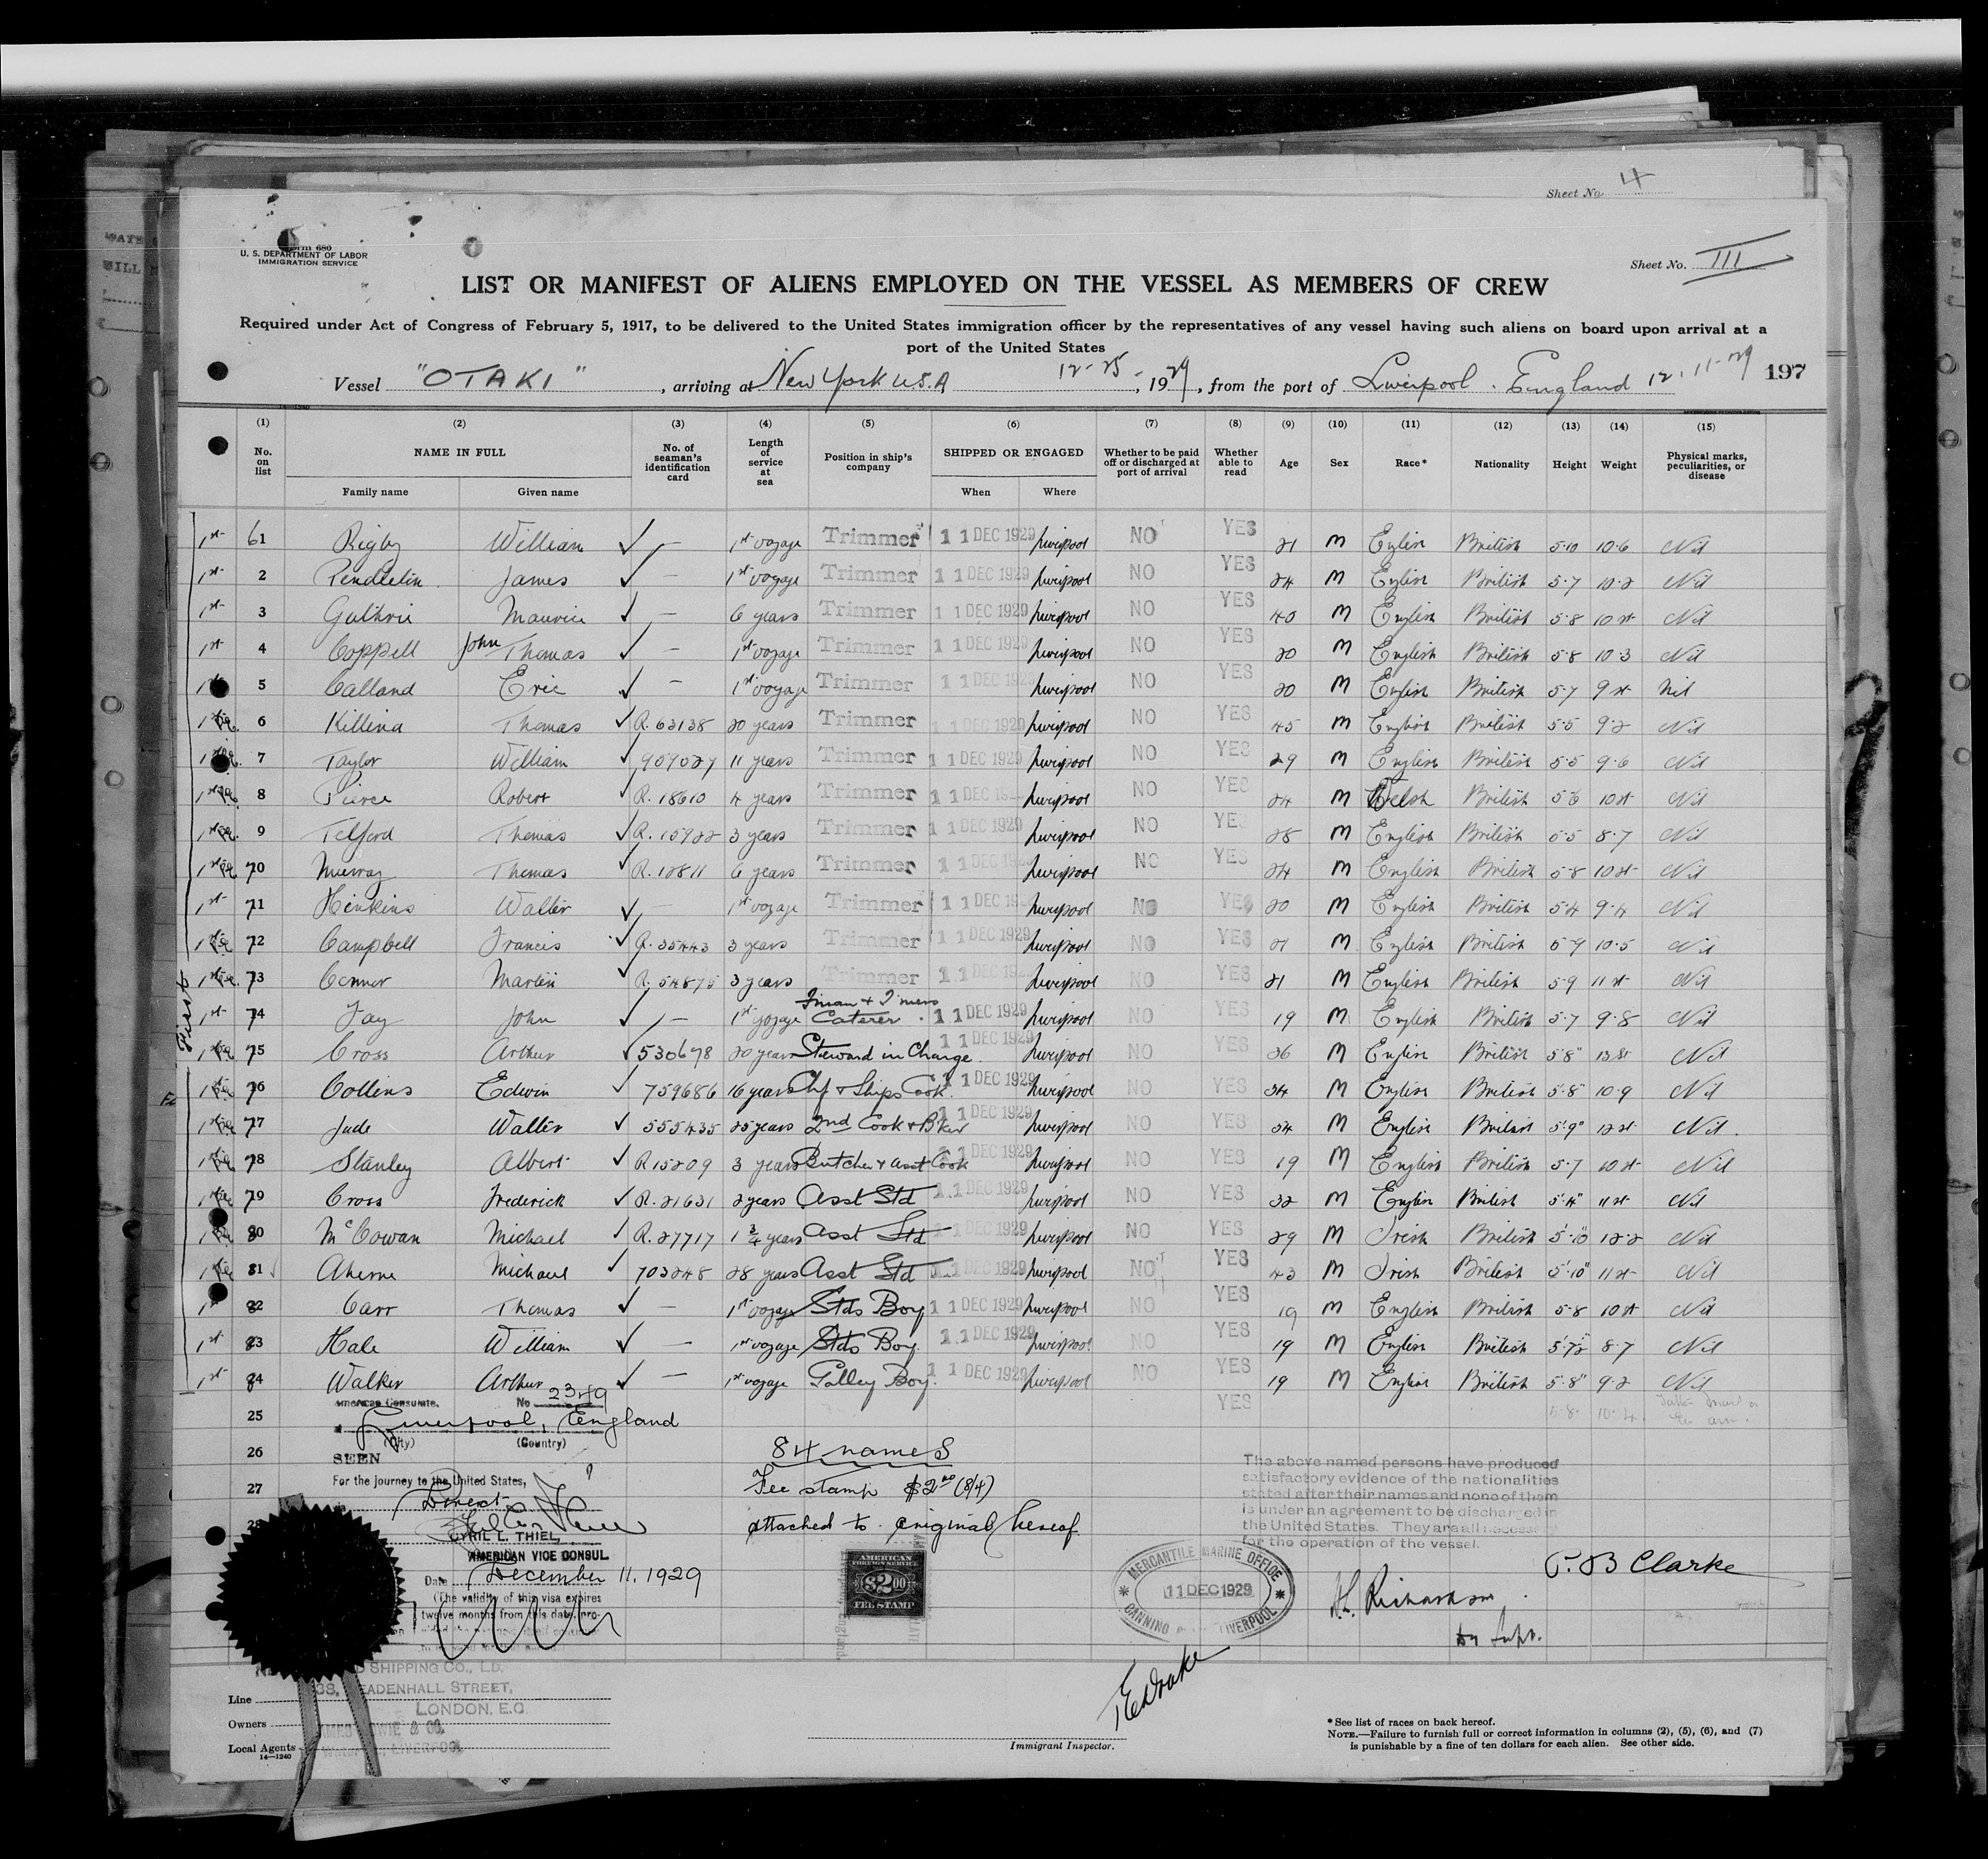 Sheet No. 4
Form 680
U. S. DEPARTMENT OF LABOR
IMMIGRATION SERVICE
Sheet No. III
LIST OR MANIFEST OF ALIENS EMPLOYED ON THE VESSEL AS MEMBERS OF CREW
Required under Act of Congress of February 5, 1917, to be delivered to the United States immigration officer by the representatives of any vessel having such aliens on board upon arrival at a
port of the United States
Vessel "OTAKI", arriving at New York U.S.A 12-25-, 1929, from the port of Liverpool. England 12-11-29 197
(1) (2) (3) (4) (5) (6) (7) (8) (9) (10) (11) (12) (13) (14) (15)
No. on list NAME IN FULL No. of seaman's identification card Length of service at sea Position in ship's company SHIPPED OR ENGAGED Whether to be paid off or discharged at port of arrival Whether able to read Age Sex Race* Nationality Height Weight Physical marks, peculiarities, or disease
Family name Given name When Where
1st 61 Rigby William ✓ — 1st voyage Trimmer 11 DEC 1929 Liverpool NO YES 21 M English British 5·10 10·6 Nil
1st 2 James ✓ — 1st voyage Trimmer 11 DEC 1929 Liverpool NO YES 24 M English British 5·7 10·2 Nil
1st 3 Guthrie Maurice ✓ — 6 years Trimmer 11 DEC 1929 Liverpool NO YES 40 M English British 5·8 10 st Nil
1st 4 Coppell John Thomas ✓ — 1st voyage Trimmer 11 DEC 1929 Liverpool NO YES 20 M English British 5·8 10·3 Nil
1st 5 Calland Eric ✓ — 1st voyage Trimmer 11 DEC 1929 Liverpool NO YES 20 M English British 5·7 9 st Nil
1st 6 Killena Thomas ✓ R. 63138 20 years Trimmer 11 DEC 1929 Liverpool NO YES 45 M English British 5·5 9·2 Nil
1st 7 Taylor William ✓ 909027 11 years Trimmer 11 DEC 1929 Liverpool NO YES 29 M English British 5·5 9·6 Nil
1st 8 Pierce Robert ✓ R. 18610 4 years Trimmer 11 DEC 19 Liverpool NO YES 24 M Welsh British 5·6 10 st Nil
1st 9 Telford Thomas ✓ R. 15922 3 years Trimmer 11 DEC 1929 Liverpool NO YE 28 M English British 5·5 8·7 Nil
1st 70 Murray Thomas ✓ R. 12811 6 years Trimmer 11 DEC 19 Liverpool NO YES 24 M English British 5·8 10 st Nil
1st 71 Henkins Walter ✓ — 1st voyage Trimmer 11 DEC 19 Liverpool NO YES 20 M English British 5·4 9·4 Nil
1st 72 Campbell Francis ✓ R. 35443 3 years Trimmer 11 DEC 1929 Liverpool NO YES 21 M English British 5·9 10·5 Nil
1st 73 Connor Martin ✓ R. 54875 3 years Trimmer 11 DEC Liverpool NO YES 21 M English British 5·9 11 st Nil
First
1st 74 Fay John ✓ — 1st voyage F'man + T'mers Caterer 11 DEC 1929 Liverpool NO YES 19 M English British 5·7 9·8 Nil
1st 75 Cross Arthur ✓ 530678 20 years Steward in Charge 11 DEC 1929 Liverpool NO YES 36 M English British 5·8" 13 st Nil
1st 76 Collins Edwin ✓ 759686 16 years Chf + Ships Cook 11 DEC 1929 Liverpool NO YES 34 M English British 5·8" 10·9 Nil
1st 77 Jude Walter ✓ 555435 25 years 2nd Cook + Bker 11 DEC 1929 Liverpool NO YES 54 M English British 5·9" 12 st Nil.
1st 78 Stanley Albert ✓ R 15209 3 years Butcher + asst Cook 11 DEC 1929 Liverpool NO YES 19 M English British 5·7 10 st Nil
1st 79 Cross Frederick ✓ R. 21631 2 years Asst Std 11 DEC 1929 Liverpool NO YES 32 M English British 5·4" 11 st Nil
1st 80 McCowan Michael ✓ R. 27717 1 3/4 years Asst Std 11 DEC 1929 Liverpool NO YES 29 M Irish British 5·10 12·2 Nil
1st 81 Aherne Michael ✓ 703248 28 years Asst Std 11 DEC 1929 Liverpool NO YES 43 M Irish British 5·10" 11 st Nil
1st 82 Carr Thomas ✓ — 1st voyage Stds Boy 11 DEC 1929 Liverpool NO YES 19 M English British 5·8 10 st Nil
1st 83 Hale William ✓ — 1st voyage Stds Boy 11 DEC 1929 Liverpool NO YES 19 M English British 5·7½ 8·7 Nil
1st 84 Walker Arthur ✓ — 1st voyage Galley Boy. 11 DEC 1929 Liverpool NO YES 19 M English British 5·8" 9·2 Nil
American Consulate, No 2349
25 Liverpool, England YES 5·8· 10·4
(City) (Country)
26 SEEN 84 names
For the journey to the United States,
27 Direct Fee stamp $2.00 (8/4)
28 attached to original hereof
CYRIL L. THIEL,
AMERICAN VICE CONSUL
Date December 11, 1929
(The validity of this visa expires
twelve months from this date, pro-
AMERICAN
FOREIGN SERVICE
$2.00
FEE STAMP
MERCANTILE MARINE OFFICE
11 DEC 1929
CANNING LIVERPOOL
The above named persons have produced
satisfactory evidence of the nationalities
stated after their names and none of them
is under an agreement to be discharged in
the United States. They are all necessary
for the operation of the vessel.
P. B Clarke
H. Richardson
Dy Supt.
E Drake
SHIPPING CO., LD.
138, LEADENHALL STREET,
Line
LONDON, E.C.
Owners
& CO.
Local Agents LIVERPOOL
14—1240
Immigrant Inspector.
* See list of races on back hereof.
NOTE.—Failure to furnish full or correct information in columns (2), (5), (6), and (7)
is punishable by a fine of ten dollars for each alien. See other side.